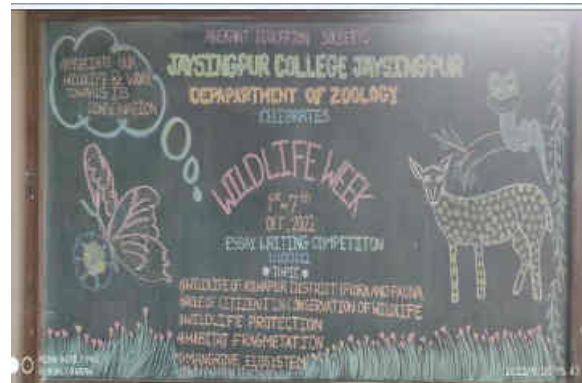 APPRECIATE OUR
WILDLIFE & WORK
TOWARDS ITS
CONSERVATION
EDUCATION SOCIETY'S
JAYSINGPUR COLLEGE JAYSINGPUR
DEPARTMENT OF ZOOLOGY
CELEBRATES
WILDLIFE WEEK
7th
OCT. 2022
ESSAY WRITING COMPETITION
TOPIC
WILDLIFE OF KOLHAPUR DISTRICT (FLORA AND FAUNA
CITIZENT IN CONSERVATION OF WILDLIFE
WILDLIFE PROTECTION
HABITAT FRAGMETATION
MANGROVE ECOSYSTEM